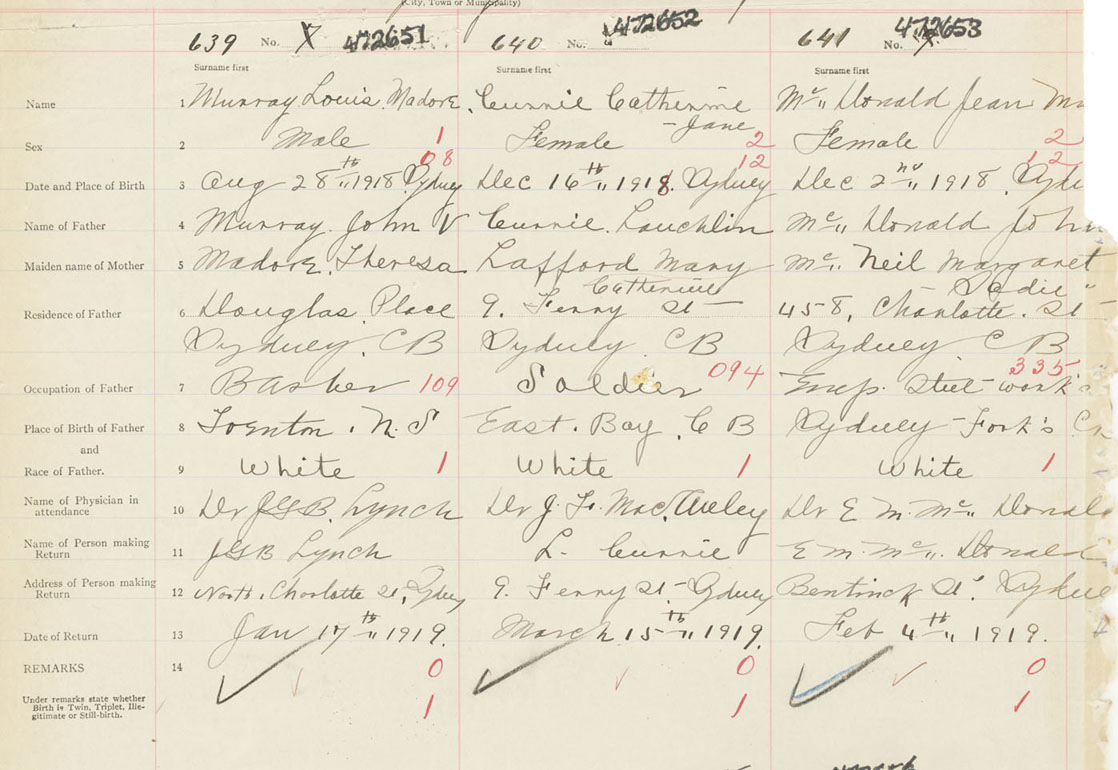 (City, Town or Municipality)
639 No. X 472651 640 No. 472652 641 No. X 472653
Surname first Surname first Surname first
Name 1 Murray Louis Madore. Currie Catherine Mc,, Donald Jean
- Jane
Sex 2 Male 1 Female 2 Female 2
08 12 12
Date and Place of Birth 3 Aug 28th,, 1918. Sydney Dec 16th,, 1918. Sydney Dec 2nd,, 1918.
Name of Father 4 Murray. John V Currie. Lauchlin Mc,, Donald John
Maiden name of Mother 5 Madore. Theresa Lafford Mary Mc,, Neil Margaret
Catherine - Sadie
Residence of Father 6 Douglas. Place 9. Ferry St 458, Charlotte. St
Sydney. CB Sydney. CB Sydney C B
Occupation of Father 7 109 Soldier 094 Emp. Steel-work's 335
Place of Birth of Father 8 N.S East. Bay. C B Sydney - Fork's
and
Race of Father. 9 White 1 White 1 White 1
Name of Physician in
attendance 10 Dr JGB. Lynch Dr J. F. Mac, Auley Dr E M. Mc,, Donald
Name of Person making
Return 11 JGB Lynch L. Currie E M. Mc,, Donald
Address of Person making
Return 12 North. Charlotte St, Sydney 9. Ferry St - Sydney Bentinck St.
Date of Return 13 Jan 17th,, 1919. March 15th,, 1919. Feb 4th,, 1919.
REMARKS 14 0 0 0
Under remarks state whether
Birth is Twin, Triplet, Ille-
gitimate or Still-birth. 1 1 1